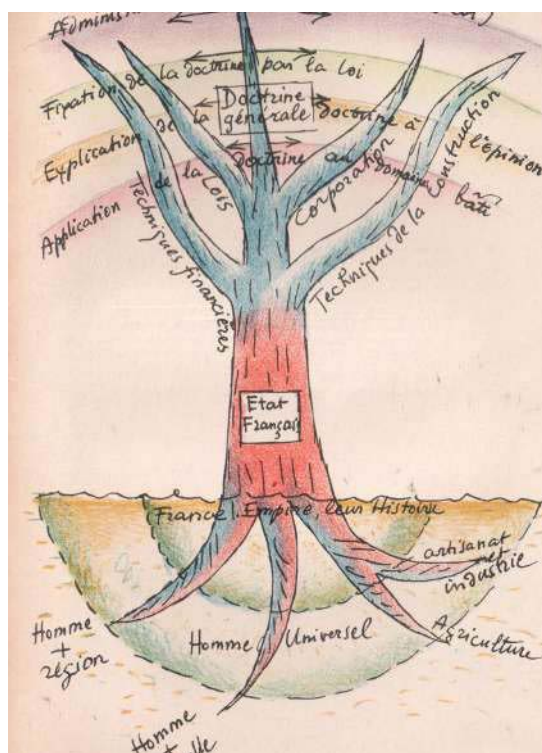 Adminis
Fixation de la doctrine par la loi
Doctrine
générale
Explication de la doctrine à l'épinion
Application de la doctrine au Domaine bati
Lois
Corporation
Techniques financières
Techniques de la construction
Etat
Français
France, Empire, leur Histoire
artisanat
et
industrie
Agriculture
Homme
+
région
Homme Universel
Homme